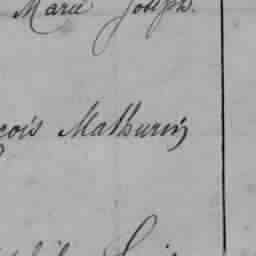 Marie Joseph.
çois Mathurin